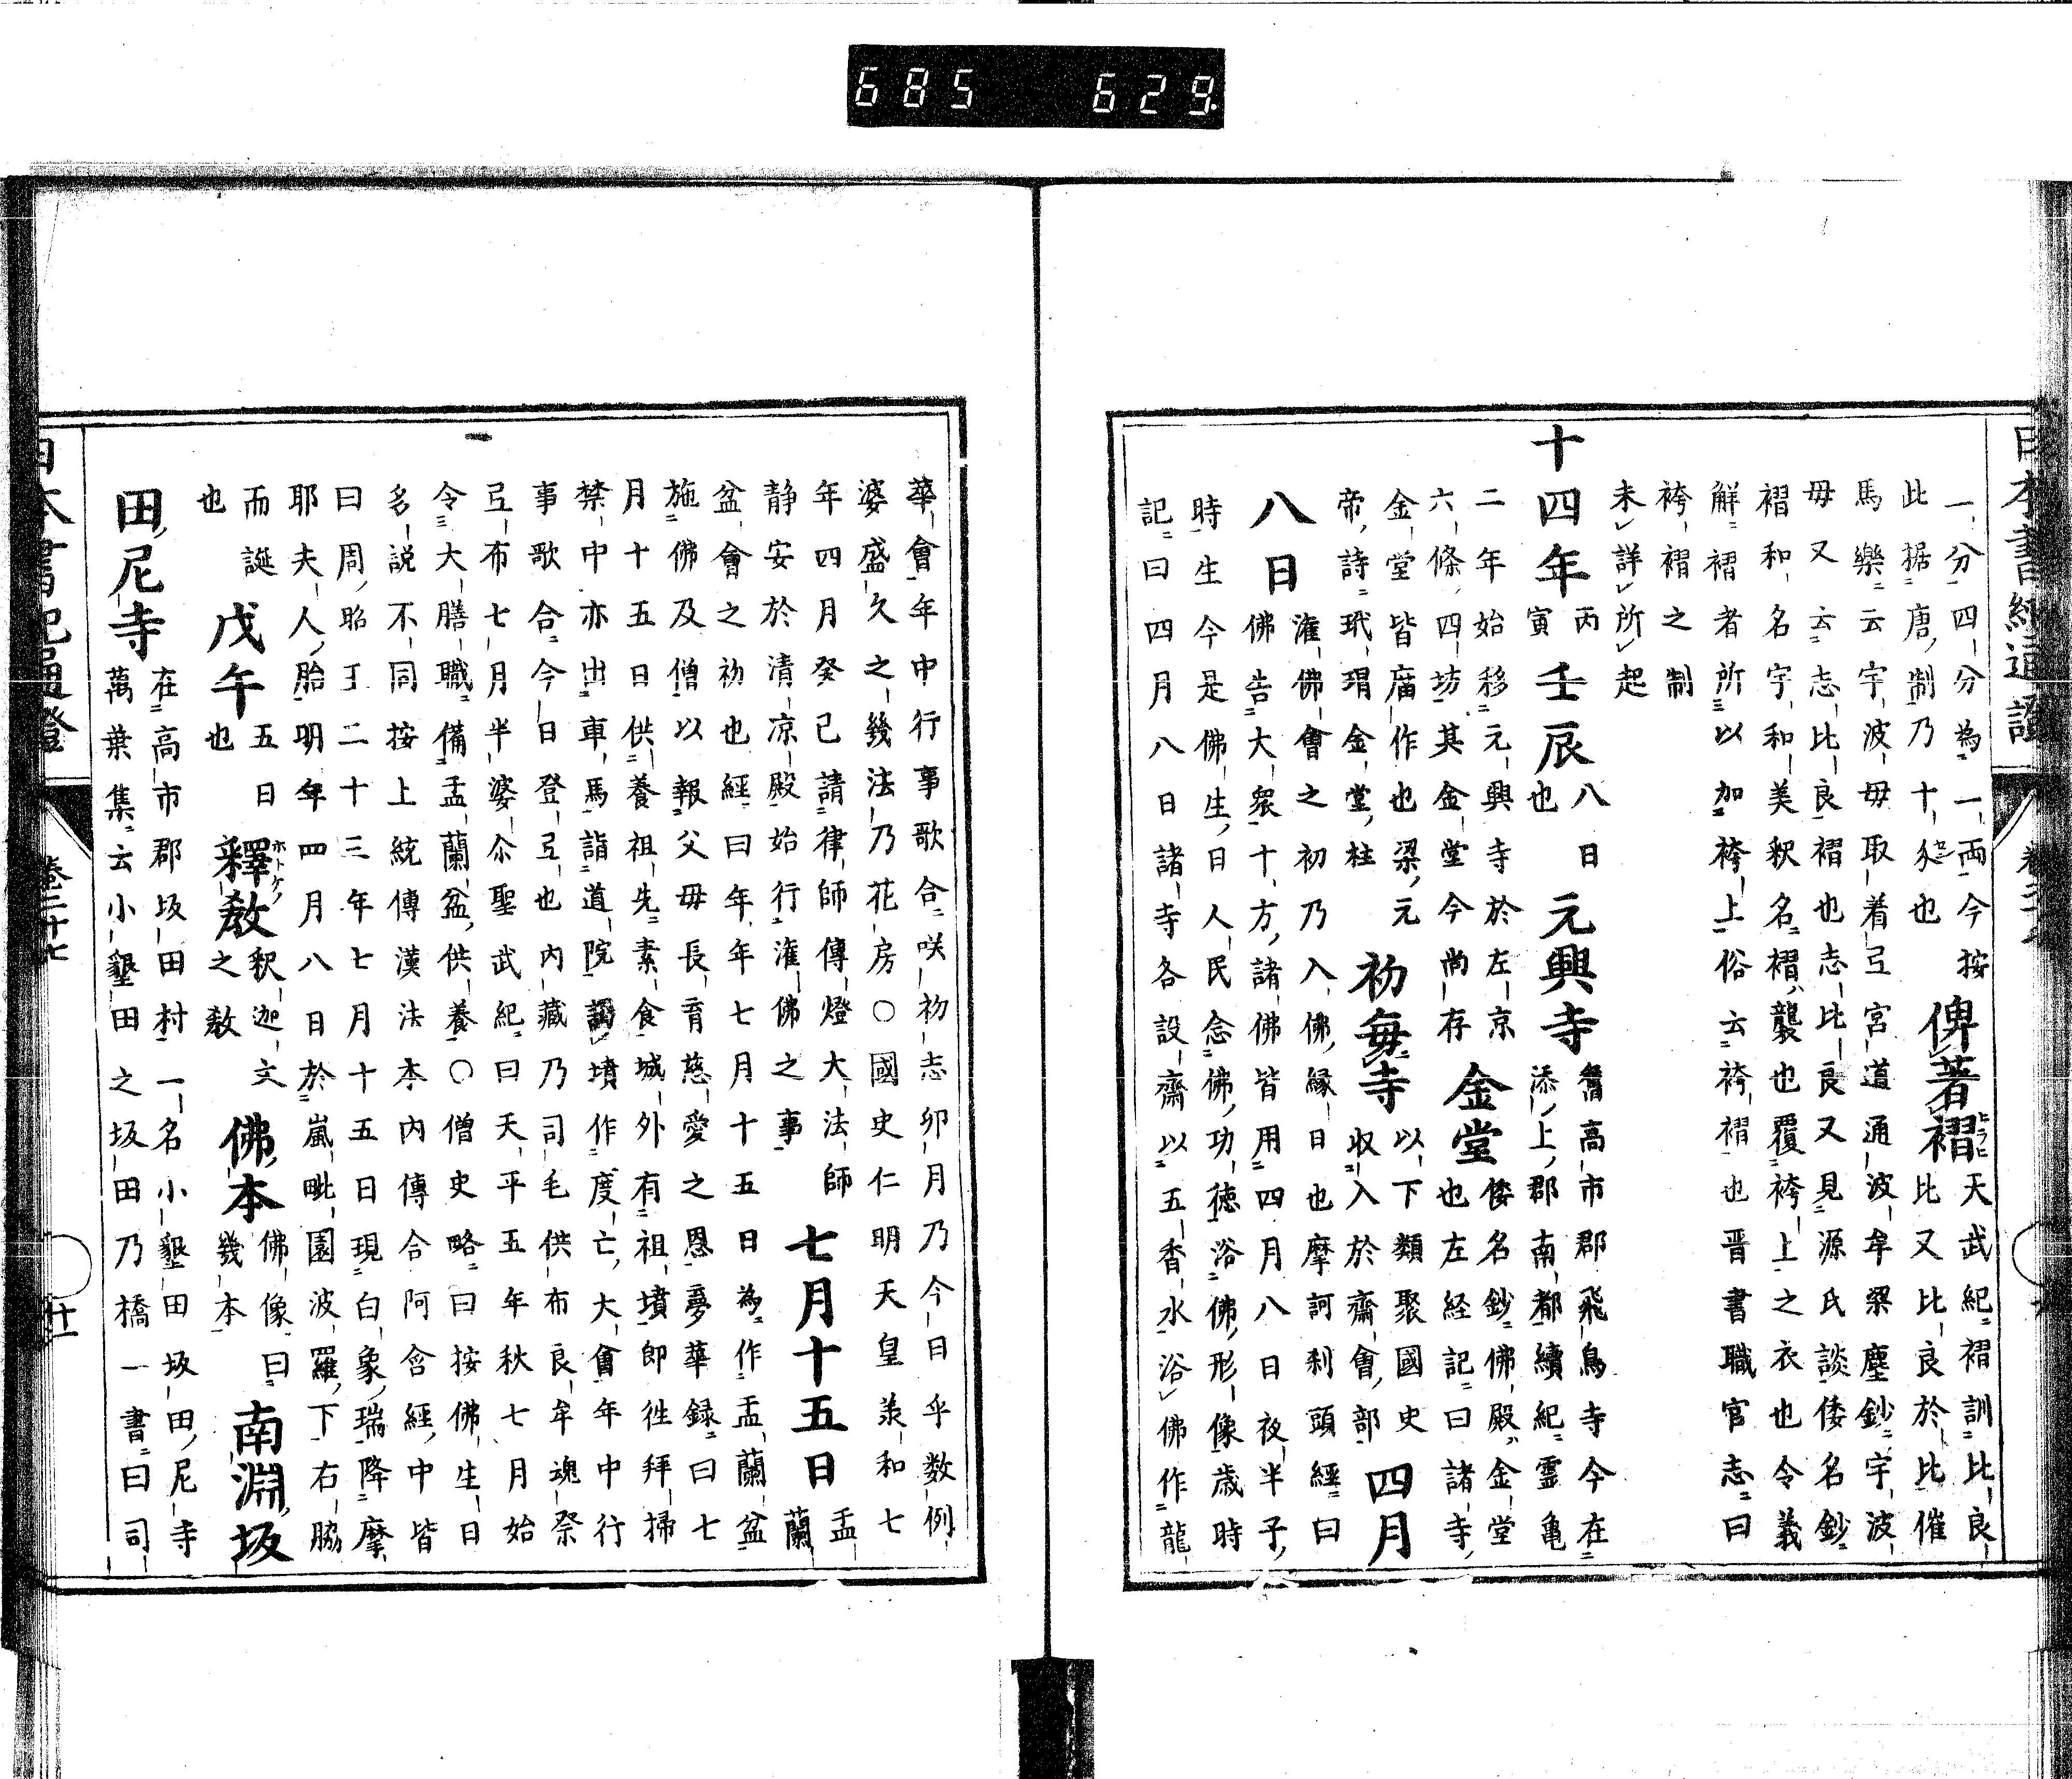 685 629
一分四分為一両今按
此据唐制乃十匁也
俾著褶
ヒラニ
天武紀褶訓比良
比又比良於比催
馬樂云宇波毋取着弖宮道通波牟梁塵鈔宇波
毋又云志比良褶也志比良又見源氏談倭名鈔
褶和名宇和美釈名褶襲也覆袴上之衣也令義
解褶者所以加袴上俗云袴褶也晋書職官志曰
袴褶之制
未詳所起
十四年
丙寅
壬辰
八日也
元興寺
舊高市郡飛鳥寺今在
添上郡南都續紀霊亀
二年始移元興寺於左京
六條四坊其金堂今尚存
金堂
倭名鈔佛殿金堂
也左経記曰諸寺
金堂皆庿作也梁元
帝詩玳瑁金堂柱
初毎寺
以下類聚國史
収入於齋會部
四月
八日
灌佛會之初乃入佛縁日也摩訶刹頭經曰
佛告大衆十方諸佛皆用四月八日夜半子
時生今是佛生日人民念佛功徳浴佛形像歳時
記曰四月八日諸寺各設齋以五香水浴佛作龍
華會年中行事歌合咲初志卯月乃今日乎数例
婆盛久之幾法乃花房〇國史仁明天皇羕和七
年四月癸已請律師傳燈大法師
静安於清凉殿始行灌佛之事
七月十五日
盂
蘭
盆會之初也經曰年年七月十五日為作盂蘭盆
施佛及僧以報父毋長育慈愛之恩夢華録曰七
月十五日供養祖先素食城外有祖墳即徃拜掃
禁中亦出車馬詣道院謁墳作度亡大會年中行
事歌合今日登弖也内藏乃司毛供布良牟魂祭
弖布七月半婆尒聖武紀曰天平五年秋七月始
令大膳職備盂蘭盆供養〇僧史略曰按佛生日
多説不同按上統傳漢法本内傳合阿含經中皆
曰周昭丁二十三年七月十五日現白象瑞降摩
耶夫人胎明年四月八日於嵐毗園波羅下右脇
而誕
也
戊午
五日
也
釋教
ホトケノ
釈迦文
之敎
佛本
佛像曰
幾本
南淵坂
田尼寺
在高市郡坂田村一名小墾田坂田尼寺
萬葉集云小墾田之坂田乃橋一書曰司
日本書紀通證
卷二十七
廿一